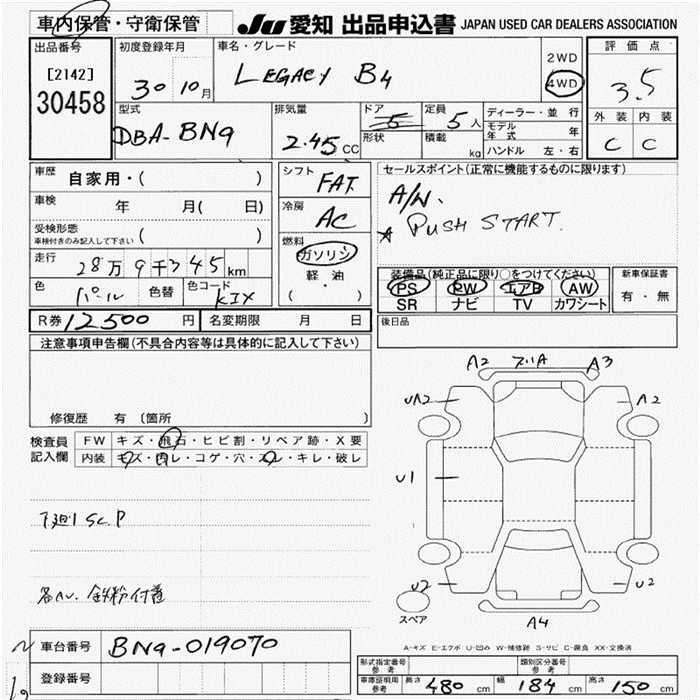 車内保管・守衛保管 JU 愛知 出品申込書 JAPAN USED CAR DEALERS ASSOCIATION
出品番号 初度登録年月 車名・グレード 評価点
[2142] 30 10月 LEGACY B4 2WD 4WD 3.5
30458
型式 排気量 ドア 定員 ディーラー・並行 外装 内装
DBA-BN9 2.45CC 5 5人 モデル年式 年 C C
形状 積載 kg ハンドル 左・右
車歴 自家用・( ) シフト FAT セールスポイント(正常に機能するものに限ります)
車検 年 月( 日) 冷房 AC A/W.
受検形態 * PUSH START.
車検付きのみ記入して下さい ( ) 燃料
走行 28万9千345km ガソリン 装備品(純正品に限り○をつけてください) 新車保証書
色 パール 色替 色コード K1X 軽・油 PS PW エアB AW 有・無
( ・ ) SR ナビ TV カワシート
R券 12500円 名変期限 月 日 後日品
注意事項申告欄(不具合内容等は具体的に記入して下さい)
修復歴 有 〔箇所 〕
A2 A3
UA2 A2
検査員 FW キズ・飛石・ヒビ割・リペア跡・X要
記入欄 内装 キズ・肉レ・コゲ・穴・スレ・キレ・破レ
U1
下廻り S C. P
U2 U2
鉄粉付着
スペア A4
A-キズ E-エクボ U-凹み W-補修跡 S-サビ C-腐食 XX-交換済
車台番号 BN9-019070
登録番号
形式指定番号 参考 類別区分番号 参考
車庫証明用 参考 長さ 480cm 幅 184cm 高さ 150cm